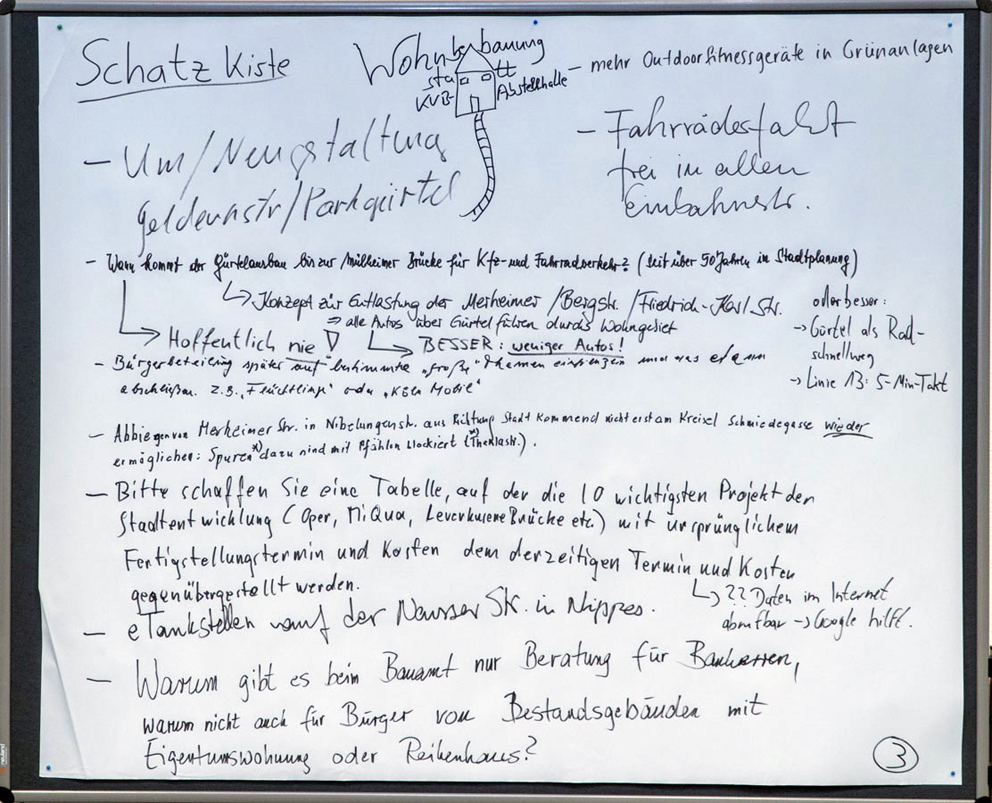 Schatz Kiste
Wohnbebauung
statt
KVB- Abstellhalle
– mehr Outdoorfitnessgeräte in Grünanlagen
– Um/Neugstaltung
Geldernstr/Parkgürtel
– Fahrrädesfahrt
frei in allen
Einbahnstr.
– Wann kommt der Gürtelausbau bis zur Mülheimer Brücke für Kfz- und Fahrradverkehr? (seit über 50 Jahren in Stadtplanung)
↳ Konzept zur Entlastung der Merheimer /Bergstr. /Friedrich-Karl-Str.
⇒ alle Autos über Gürtel führen durchs Wohngebiet
→ Hoffentlich nie
↳ BESSER: weniger Autos!
oder besser:
→ Gürtel als Rad-
schnellweg
→ Linie 13: 5-Min-Takt
– Bürgerbeteilung später auf bestimmte „große" Themen eingrenzen
abschließen. z.B. „Flüchtlinge" oder „Köln Mobil"
– Abbiegen von Merheimer Str. in Nibelungenstr. aus Richtung Stadt kommend nicht erst am Kreisel Schmiedegasse wieder
ermöglichen: Spuren *) dazu sind mit Pfählen blockiert (*) Theklastr.).
– Bitte schaffen Sie eine Tabelle, auf der die 10 wichtigsten Projekt der
Stadtentwicklung (Oper, MiQua, Leverkusene Brücke etc.) mit ursprünglichem
Fertigstellungstermin und Kosten dem derzeitigen Termin und Kosten
gegenübergestellt werden.
↳ ?? Daten im Internet
abrufbar → Google hilft.
– eTankstellen auf der Neusser Str. in Nippes.
– Warum gibt es beim Bauamt nur Beratung für Bauherren,
warum nicht auch für Bürger von Bestandsgebäuden mit
Eigentumswohnung oder Reihenhaus?
3
neuland